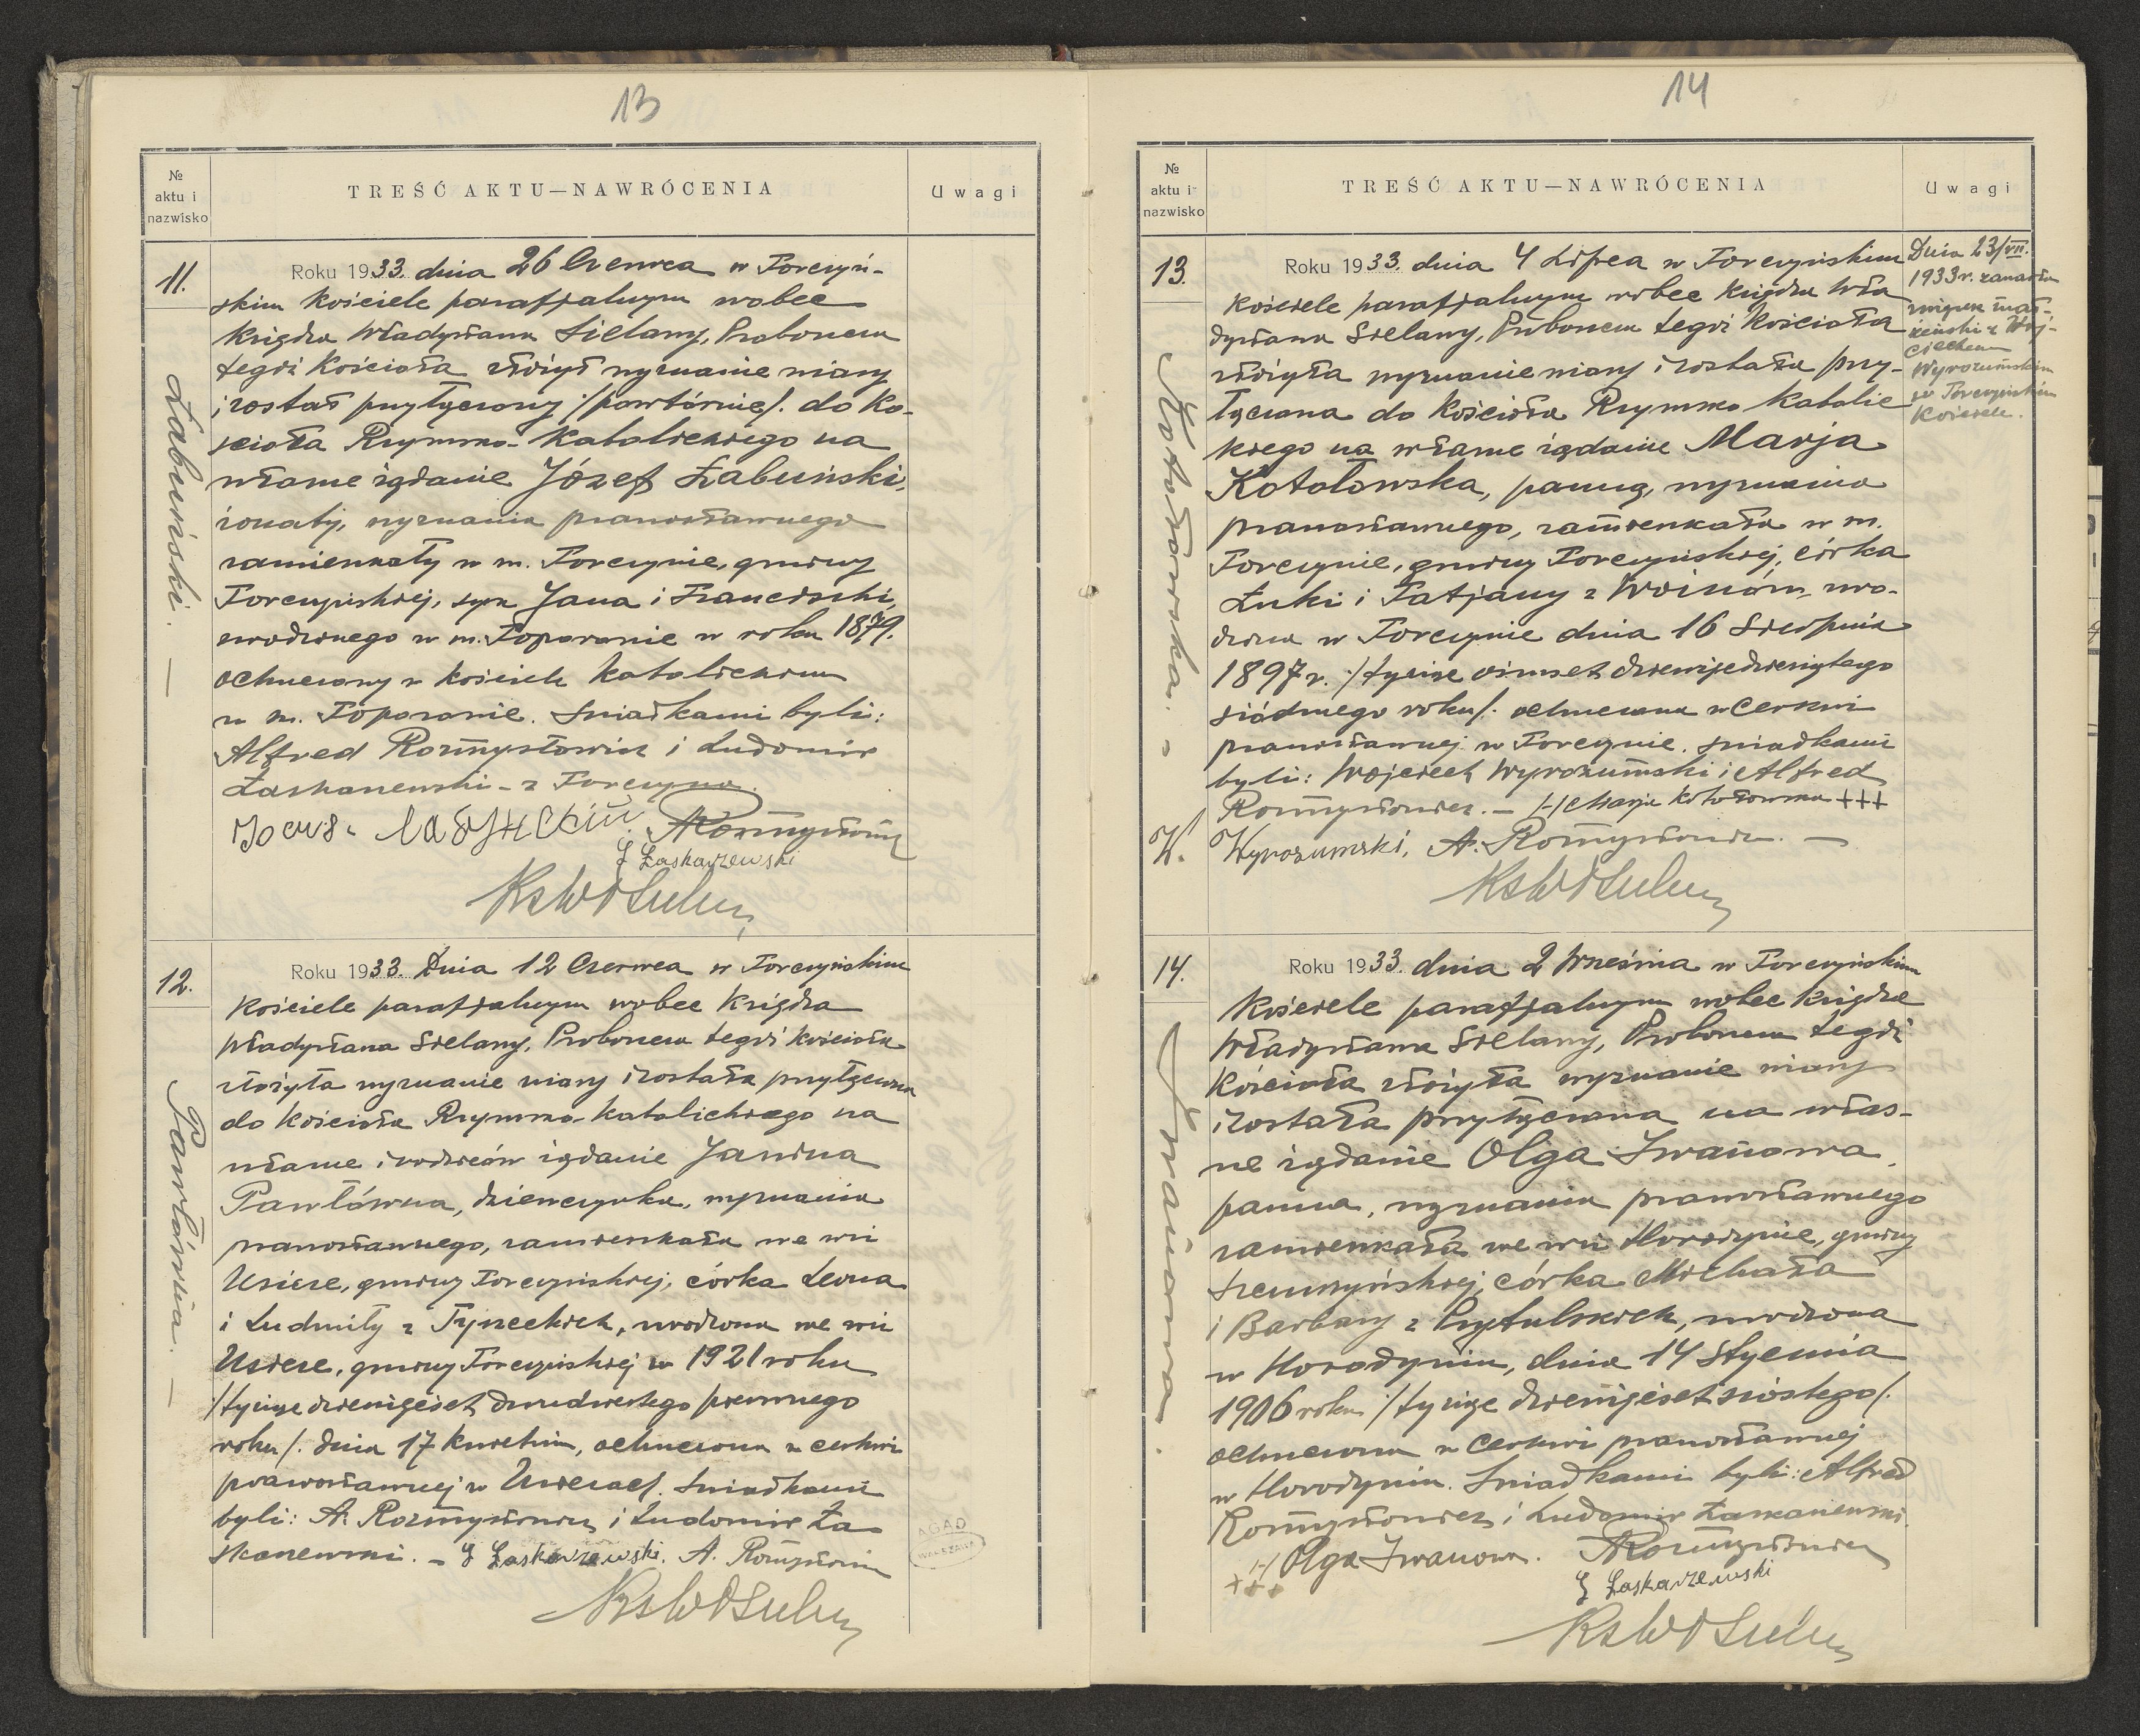 13
№
aktu i
nazwisko
TREŚĆ AKTU—NAWRÓCENIA
Uwagi
11.
Łabuński. —
Roku 1933. dnia 26 Czerwca w Torczyń-
skim Kościele parafjalnym wobec
Księdza Władysława Sielawy, Proboszcza
tegoż Kościoła złożył wyznanie wiary
i został przyłączony /:powtórnie/. do Ko-
ścioła Rzymsko-Katolickiego na
własne żądanie Józef Łabuński,
żonaty, wyznania prawosławnego
zamieszkały w m. Torczynie, gminy
Torczyńskiej, syn Jana i Franciszki,
urodzonego w m. Toporowie w roku 1879.
ochrzczony w kościele katolickim
w m. Toporowie. Świadkami byli:
Alfred Rozmysłowicz i Ludomir
Łaskarzewski - z Torczyna.
Лабунский ARozmysłowicz
L Łaskarzewski
KsWłSielawa
12.
Pawłówna. —
Roku 1933. Dnia 12 Czerwca w Torczyńskim
Kościele parafjalnym wobec Księdza
Władysława Sielawy, Proboszcza tegoż kościoła
złożyła wyznanie wiary i została przyłączona
do Kościoła Rzymsko-Katolickiego na
własne i rodziców żądanie Janina
Pawłówna, dziewczynka, wyznania
prawosławnego, zamieszkała we wsi
Usicze, gminy Torczyńskiej, córka Leona
i Ludmiły z Tyneckich, urodzona we wsi
Usicze, gminy Torczyńskiej w 1921 roku
/tysiąc dziewięćset dwudziestego pierwszego
roku/. dnia 17 kwietnia, ochrzczona w cerkwi
prawosławnej w Usiczach. Świadkami
byli: A. Rozmysłowicz i Ludomir Ła-
skarzewski. - L Łaskarzewski. A. Rozmysłowicz
KsWłSielawa
AGAD
WARSZAWA
14
№
aktu i
nazwisko
TREŚĆ AKTU—NAWRÓCENIA
Uwagi
13.
Kotołowska. -
Roku 1933. dnia 4 Lipca w Torczyńskim
Kościele parafjalnym wobec Księdza Wła
dysława Sielawy, Proboszcza tegoż Kościoła
złożyła wyznanie wiary i została przy-
łączona do Kościoła Rzymsko Katolic
kiego na własne żądanie Marja
Kotołowska, panną, wyznania
prawosławnego, zamieszkała w m.
Torczynie, gminy Torczyńskiej, córka
Łuki i Tatjany z Woinów, uro-
dzona w Torczynie dnia 16 Sierpnia
1897 r. :/tysiąc ośmset dziewięćdziesiątego
siódmego roku/. ochrzczona w Cerkwi
prawosławnej w Torczynie. Świadkami
byli: Wojciech Wyrozumski i Alfred
Rozmysłowicz. - /-/ Marja Kotołowska +++
W. Wyrozumski, A. Rozmysłowicz. —
KsWłSielawa
Dnia 23/VII.
1933 r. zawarła
związek mał-
żeński z Woj-
ciechem
Wyrozumskim
w Torczyńskim
Kościele.
14.
Iwanowa.
Roku 1933. dnia 2 Września w Torczyńskim
Kościele parafjalnym wobec Księdza
Władysława Sielawy, Proboszcza tegoż
Kościoła złożyła wyznanie wiary
i została przyłączona na włas-
ne żądanie Olga Iwanowa,
panna, wyznania prawosławnego
zamieszkała we wsi Horodynie, gminy
córka Michała
i Barbary z Przytulskich, urodzona
w Horodyniu, dnia 14 Stycznia
1906 roku :/tysiąc dziewięćset szóstego/.
ochrzczona w Cerkwi prawosławnej
w Horodyniu. Świadkami byli: Alfred
Rozmysłowicz i Ludomir Łaskarzewski.
/-/ Olga Iwanowa. ARozmysłowicz
+++
L Łaskarzewski
KsWłSielawa